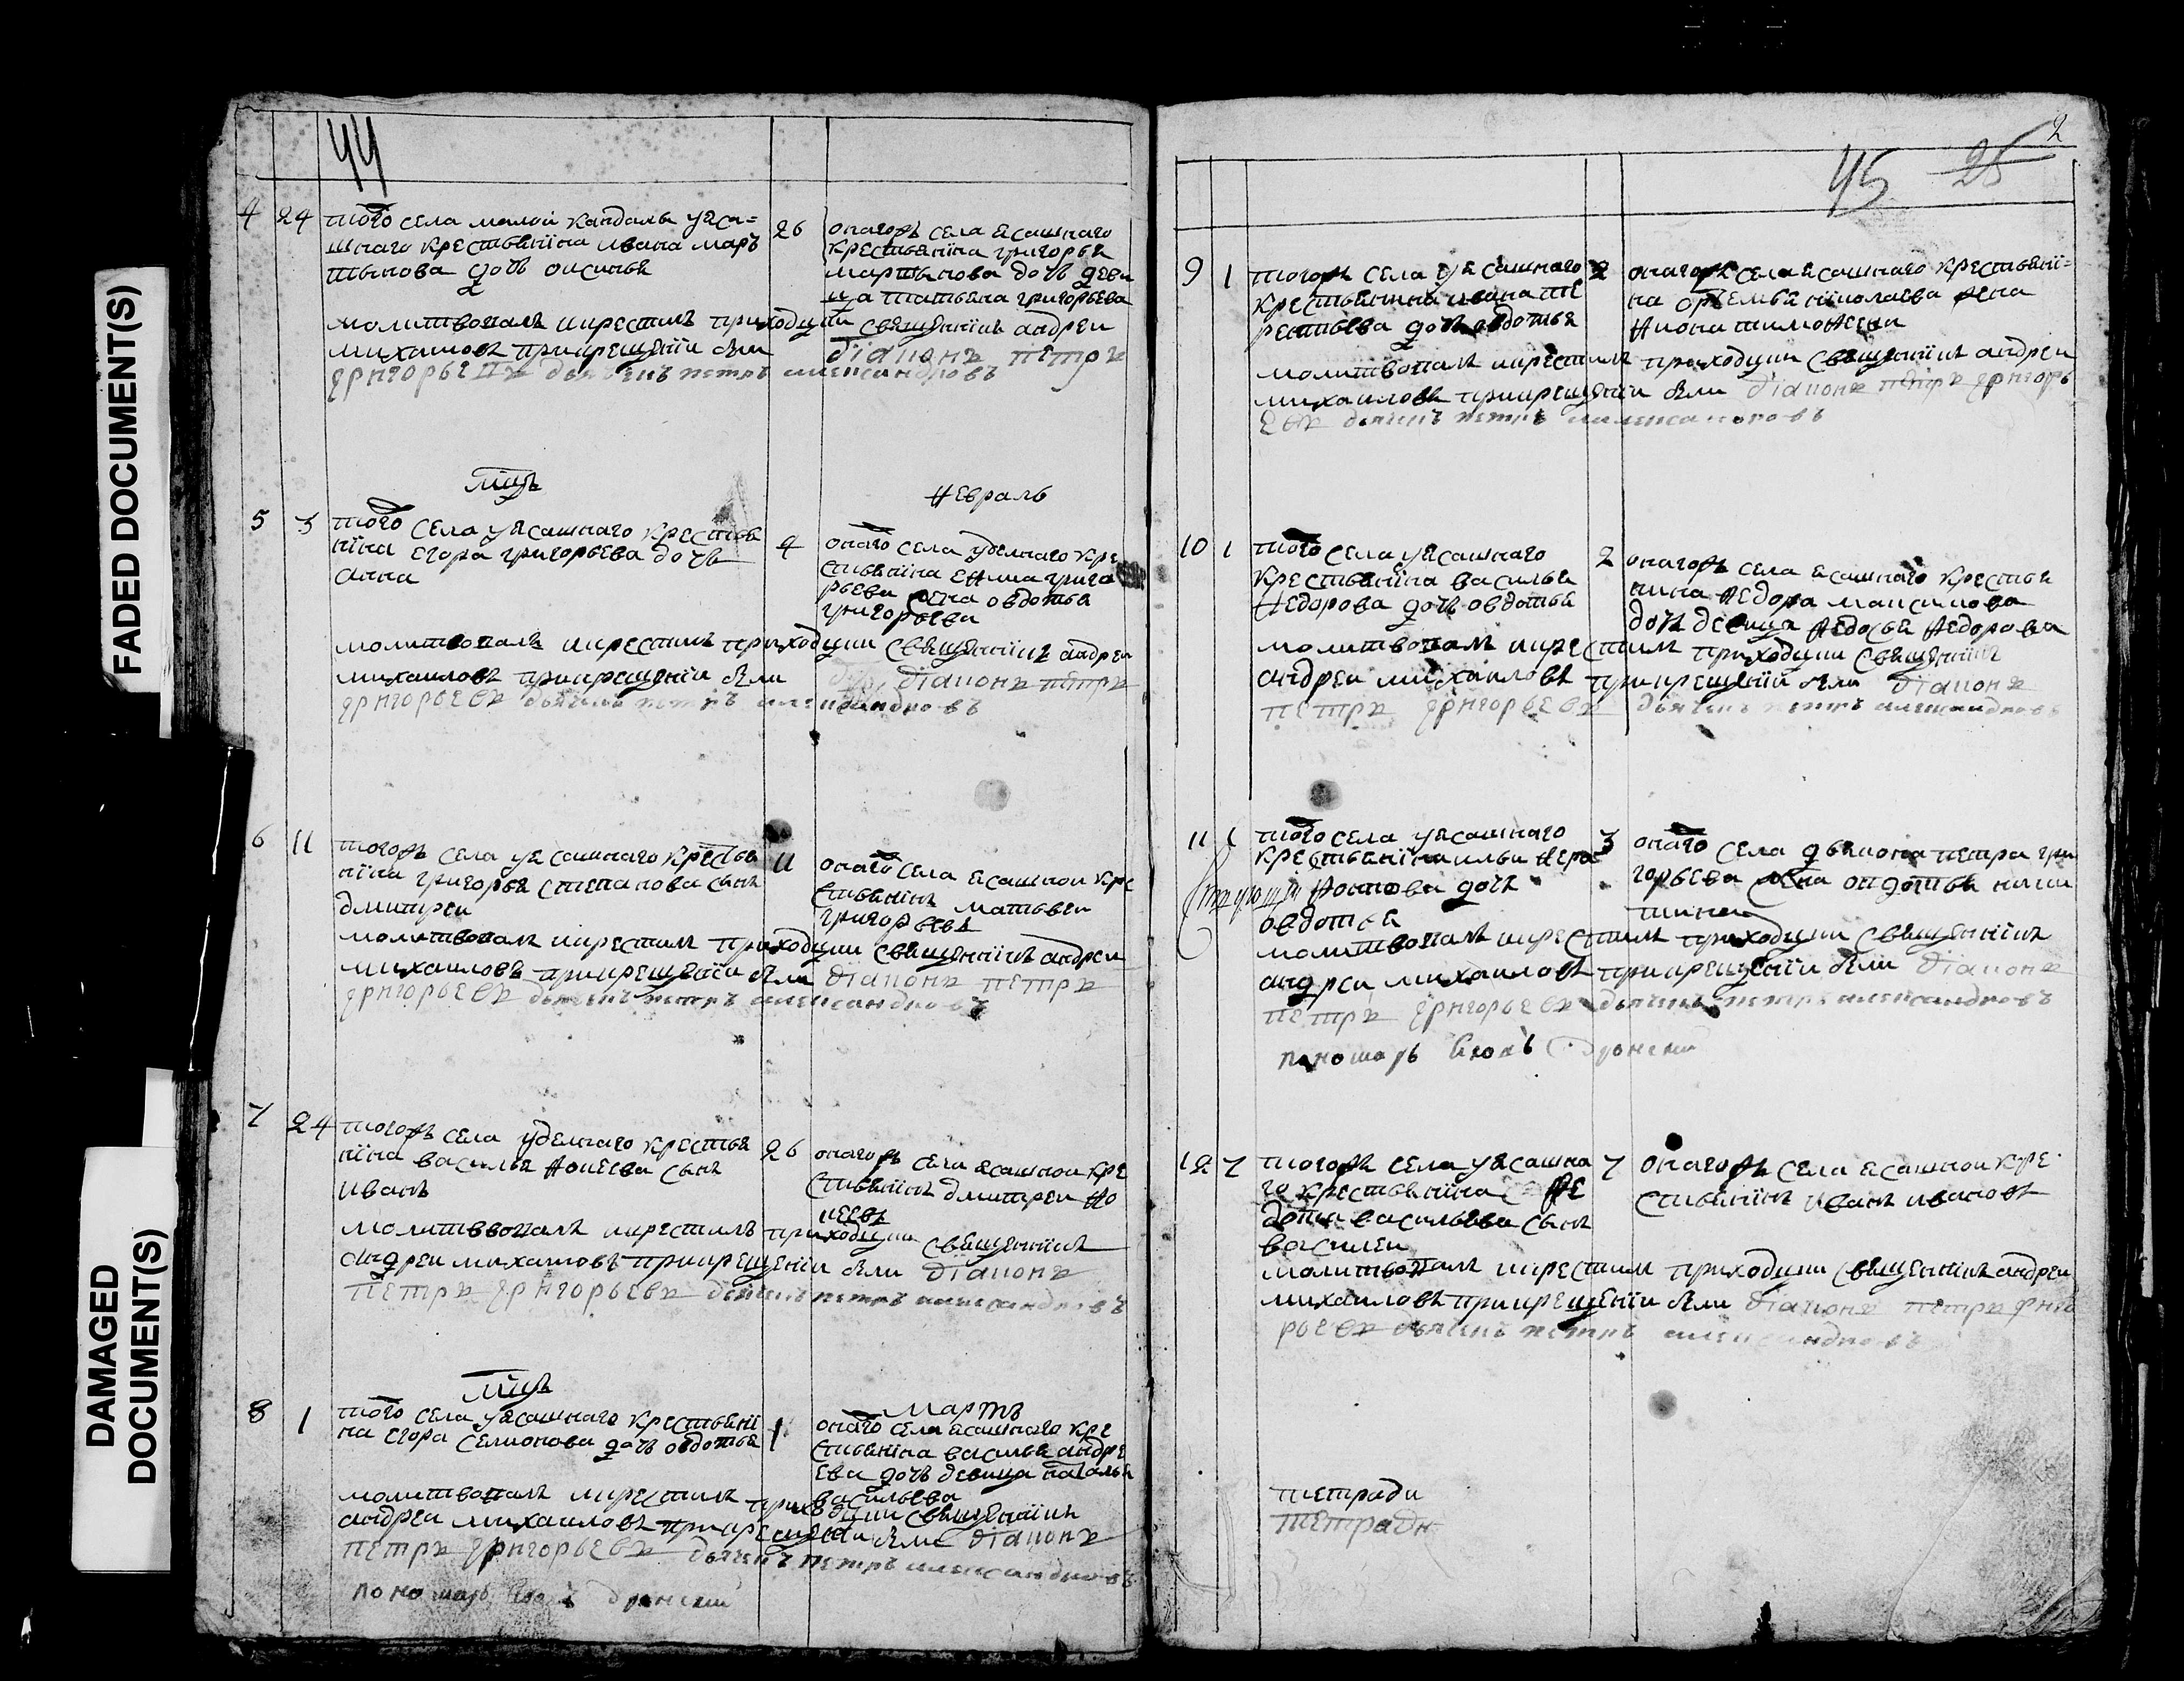 FADED DOCUMENT(S)
DAMAGED
DOCUMENT(S)
44
4 24 того села малой кандалы уяса=
шнаго крестьянина ивана мар
тынова дочь
26 онагожъ села ясашнаго
крестьянина григорья
мартынова дочь деви
ца татьяна григорьева
молитвовалъ икрестилъ приходции священникъ андреи
михаиловъ прикрещении был
діаконъ петръ
григорьевъ дьячекъ петръ александровъ
мцъ февраль
5 3 того села уясашнаго крестья
нина егора григорьева дочь
анна
4 онаго села уделнаго кре
стьянина ефима григо
рьева жена овдотья
григорьева
молитвовалъ икрестилъ приходции священникъ андреи
михаиловъ прикрещении были діаконъ петръ
григорьевъ дьячекъ петръ александровъ
6 11 тогожъ села уясашнаго крестья
нина григорья степанова сынъ
дмитреи
11 онаго села ясашнои кре
стьянинъ матьвеи
григорьевъ
молитвовалъ икрестилъ приходции священникъ андреи
михаиловъ прикрещении были діаконъ петръ
григорьевъ дьячекъ петръ александровъ
7 24 тогожъ села уделнаго крестья
нина василья фокеева сынъ
иванъ
26 онагожъ села ясашнои кре
стьянинъ дмитреи фо
кеевъ
молитвовалъ икрестилъ приходции священникъ
андреи михаиловъ прикрещении были діаконъ
петръ григорьевъ дьячекъ петръ александровъ
мцъ мартъ
8 1 того села уясашнаго крестьяни
на егора селионова дочь овдотья
1 онаго села ясашнаго кре
стьянина василья андре
ева дочь девица наталья
васильева
молитвовалъ икрестилъ приходции священникъ
андреи михаиловъ прикрещении были діаконъ
петръ григорьевъ дьячекъ петръ александровъ
пономарь
2
45 25
9 1 тогожъ села уясашнаго
крестьянина ивана те
рентьева дочь овдотья
2 онагожъ села ясашнаго крестьяни=
на ортемья николаева жена
тимофеева
молитвовалъ икрестилъ приходции священникъ андреи
михаиловъ прикрещении были діаконъ петръ григорь
евъ дьячекъ петръ александровъ
10 1 того села уясашнаго
крестьянина василья
федорова дочь овдотья
2 онагожъ села ясашнаго крестья
нина федора максимова
дочь девица федосья федорова
молитвовалъ икрестилъ приходции священникъ
андреи михаиловъ прикрещении были діаконъ
петръ григорьевъ дьячекъ петръ александровъ
11 1 того села уясашнаго
крестьянина ильи
дочь
овдотья
3 онаго села дьякона петра гри
горьева жена овдотья ники
тина
молитвовалъ икрестилъ приходции священникъ
андреи михаиловъ прикрещении были діаконъ
петръ григорьевъ дьячекъ петръ александровъ
пономарь
12 7 тогожъ села уясашна
го крестьянина фе
дота васильева сынъ
василеи
7 онагожъ села ясашнои кре
стьянинъ иванъ ивановъ
молитвовалъ икрестилъ приходции священникъ андреи
михаиловъ прикрещении были діаконъ петръ григо
рьевъ дьячекъ петръ александровъ
тетради
тетради